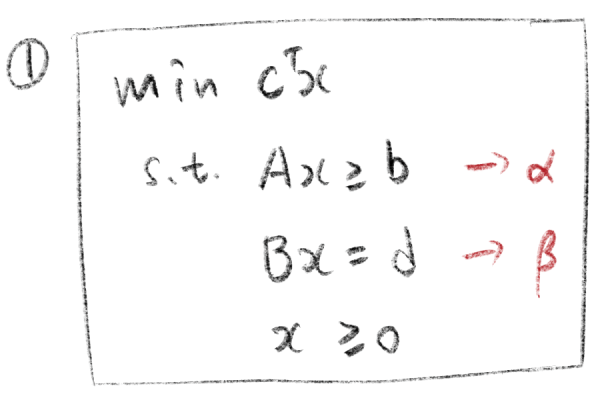 ① min cᵀx
s.t. Ax ≥ b → α
Bx = d → β
x ≥ 0